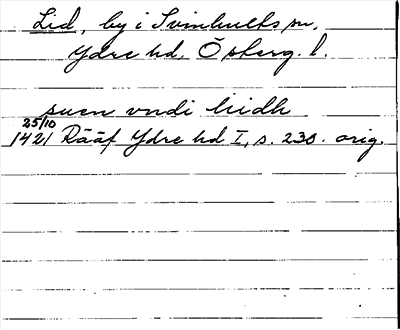 Lid, by i Svinhults sn,
Ydre hd, Östergötl. l.
suen vndi liidh
25/10
1421 Rääf Ydre hd I, s. 230. orig.